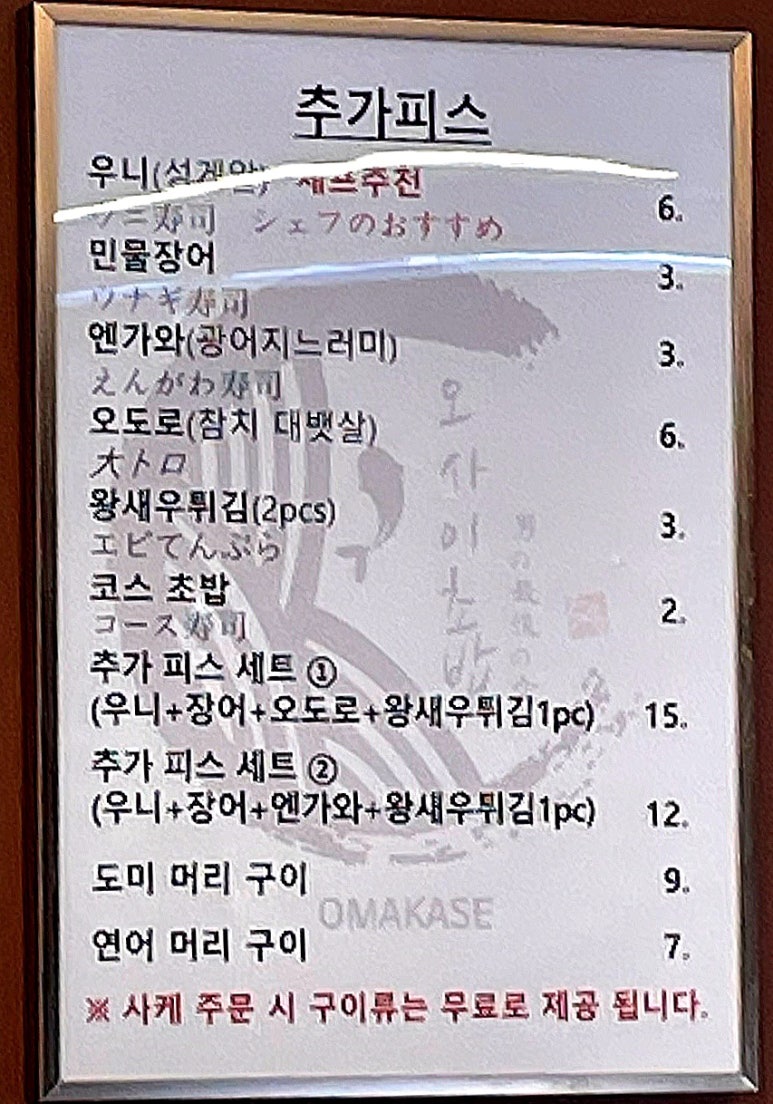 추가피스
우니(성게알) 셰프추천
ウニ寿司 シェフのおすすめ 6.
민물장어
ウナギ寿司 3.
엔가와(광어지느러미)
えんがわ寿司 3.
오도로(참치 대뱃살)
大トロ 6.
왕새우튀김(2pcs)
エビてんぷら 3.
코스 초밥
コース寿司 2.
추가 피스 세트 ①
(우니+장어+오도로+왕새우튀김1pc) 15.
추가 피스 세트 ②
(우니+장어+엔가와+왕새우튀김1pc) 12.
도미 머리 구이 9.
연어 머리 구이 7.
※ 사케 주문 시 구이류는 무료로 제공 됩니다.
오사이초밥
OMAKASE